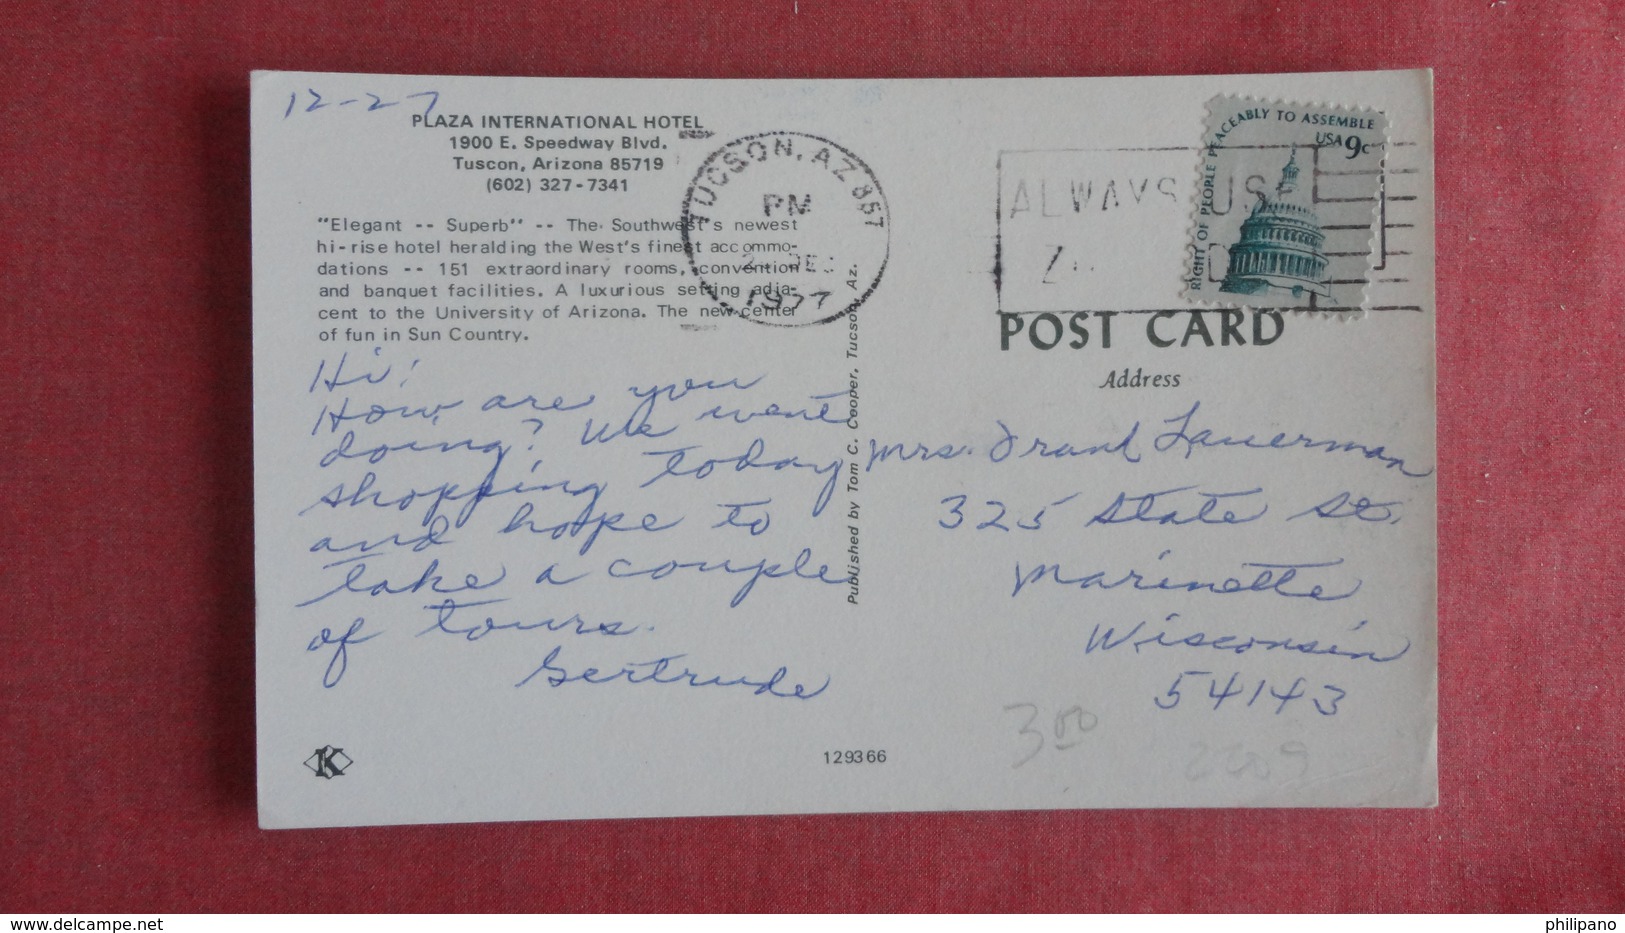 12-27
PLAZA INTERNATIONAL HOTEL
1900 E. Speedway Blvd.
Tuscon, Arizona 85719
(602) 327-7341
"Elegant -- Superb" -- The Southwest's newest
hi-rise hotel heralding the West's finest accommo-
dations -- 151 extraordinary rooms, convention
and banquet facilities. A luxurious setting adja-
cent to the University of Arizona. The new center
of fun in Sun Country.
Hi!
How are you
doing? We went
shopping today
and hope to
take a couple
of tours.
Gertrude
K
129366
Published by Tom C. Cooper, Tucson, Az.
TUCSON, AZ 857
PM
DEC
1977
ALWAYS USE
Z
RIGHT OF PEOPLE PEACEABLY TO ASSEMBLE
USA 9c
POST CARD
Address
Mrs. Frank Lauerman
325 State St.
Marinette
Wisconsin
54143
3.00
delcampe.net
philipano